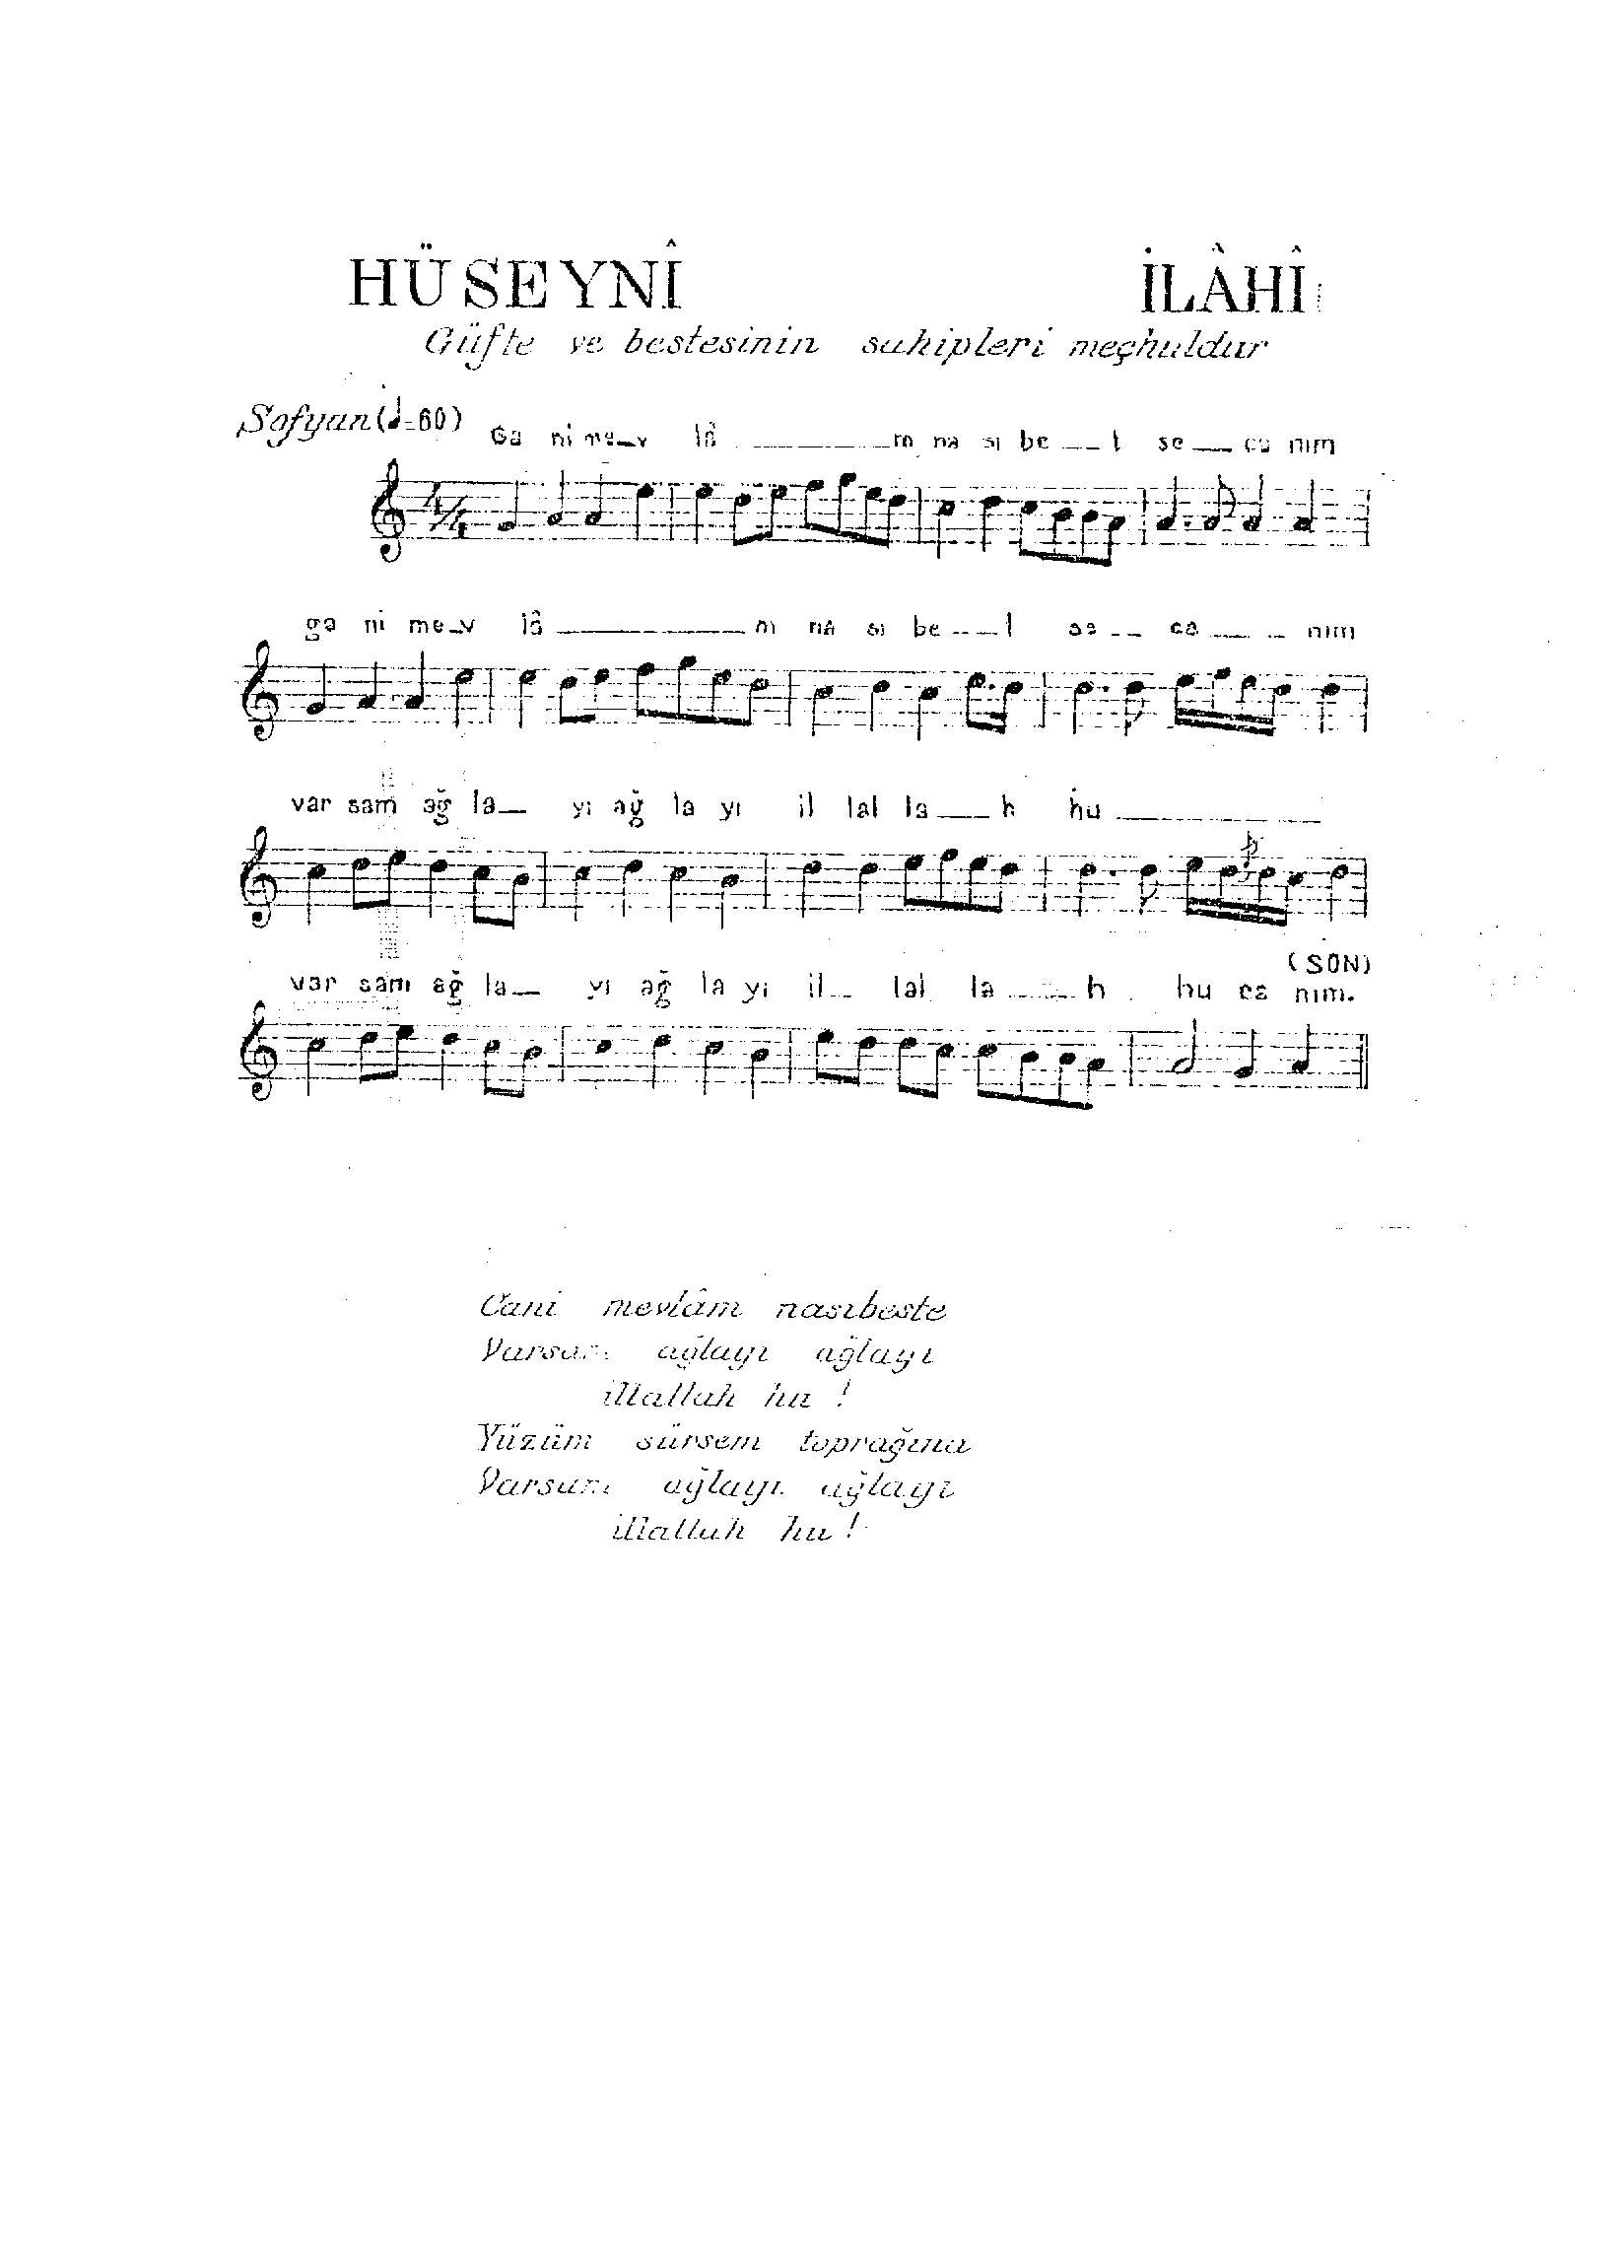 HÜSEYNÎ İLÂHÎ
Güfte ve bestesinin sahipleri meçhuldur
Sofyan (♩=60) Ga ni me_v lâ ______m na sı be __t se__ ca nım
4/4
ga ni me_v lâ ______m na sı be __t se __ ca __ nım
var sam ağ la_ yı ağ la yı il lal la__h hu ______
(SON)
var sam ağ la_ yı ağ la yı il_ lal la ___h hu ca nım.
Cani mevlâm nasıbeste
Varsam ağlayı ağlayı
illallah hu !
Yüzüm sürsem toprağına
Varsam ağlayı ağlayı
illallah hu !